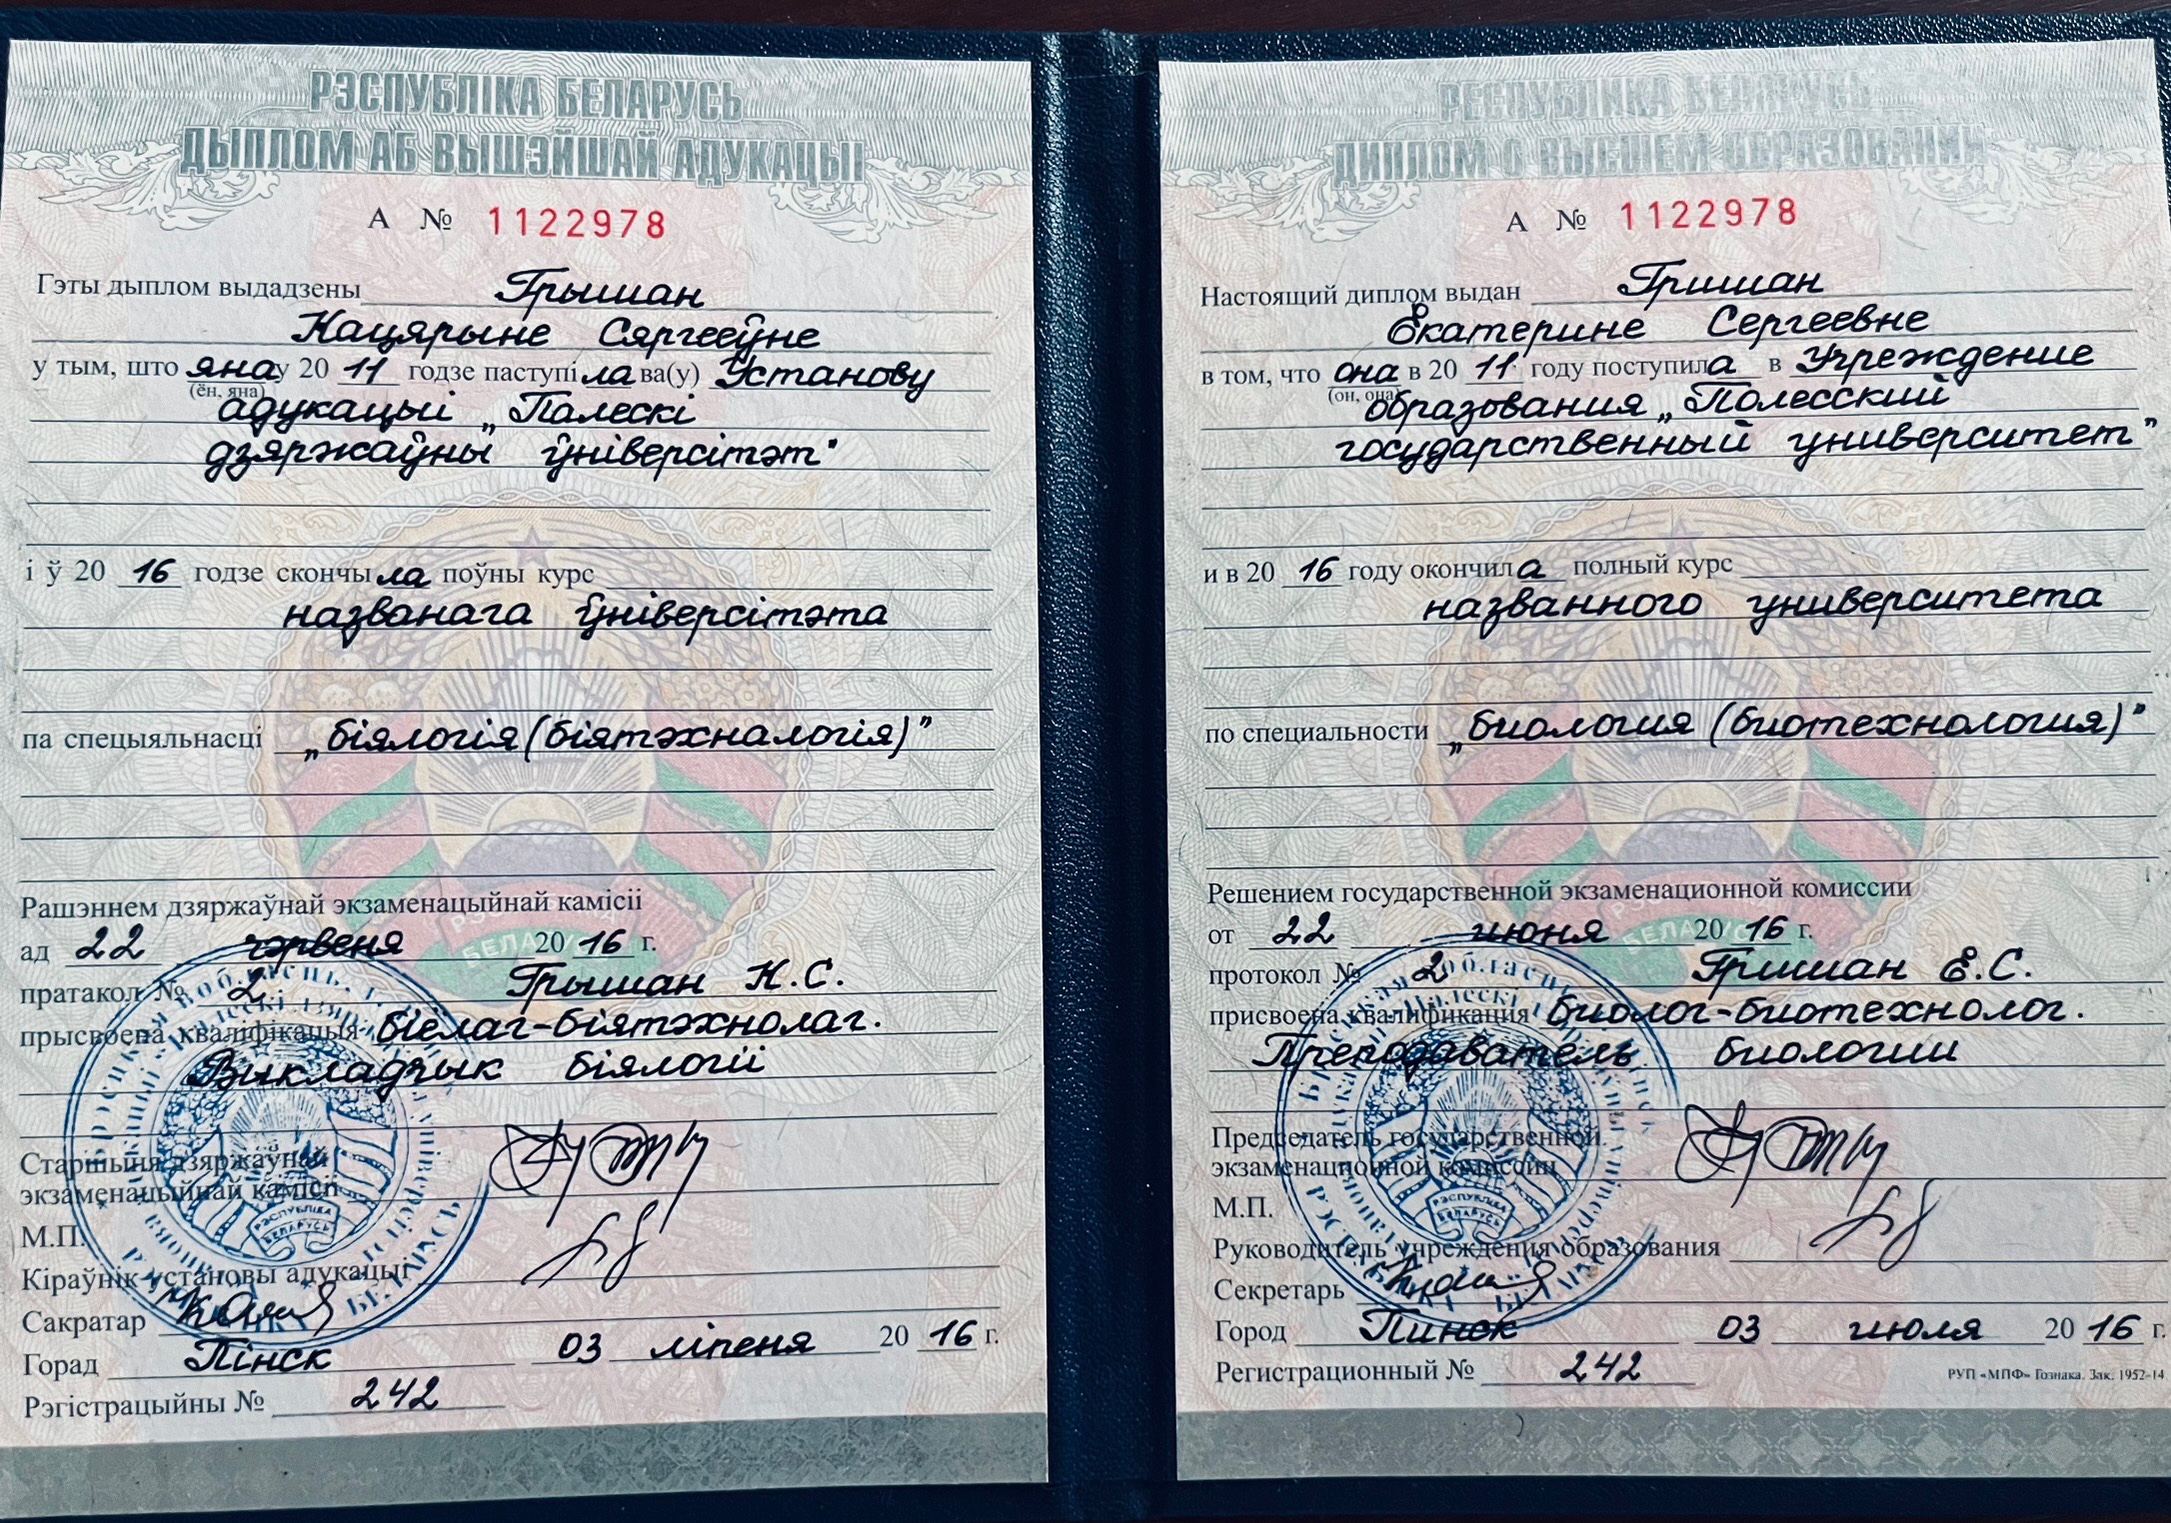 РЭСПУБЛІКА БЕЛАРУСЬ
ДЫПЛОМ АБ ВЫШЭЙШАЙ АДУКАЦЫІ
А № 1122978
Гэты дыплом выдадзены Грышан
Кацярыне Сяргееўне
у тым, што яна у 20 11 годзе паступіла ва(у) Установу
(ён, яна)
адукацыі „Палескі
дзяржаўны ўніверсітэт"
і ў 20 16 годзе скончыла поўны курс
названага ўніверсітэта
па спецыяльнасці „біялогія (біятэхналогія)"
Рашэннем дзяржаўнай экзаменацыйнай камісіі
ад 22 чэрвеня 20 16 г.
пратакол № 2 Грышан К.С.
прысвоена кваліфікацыя біёлаг-біятэхнолаг.
Выкладчык біялогіі
Старшыня дзяржаўнай
экзаменацыйнай камісіі
М.П.
Кіраўнік установы адукацыі
Сакратар
Горад Пінск 03 ліпеня 20 16 г.
Рэгістрацыйны № 242
РЭСПУБЛІКА
БЕЛАРУСЬ
РЕСПУБЛИКА БЕЛАРУСЬ
ДИПЛОМ О ВЫСШЕМ ОБРАЗОВАНИИ
А № 1122978
Настоящий диплом выдан Гришан
Екатерине Сергеевне
в том, что она в 20 11 году поступила в Учреждение
(он, она)
образования „Полесский
государственный университет"
и в 20 16 году окончила полный курс
названного университета
по специальности „биология (биотехнология)"
Решением государственной экзаменационной комиссии
от 22 июня 20 16 г.
протокол № 2 Гришан Е.С.
присвоена квалификация биолог-биотехнолог.
Преподаватель биологии
Председатель государственной
экзаменационной комиссии
М.П.
Руководитель учреждения образования
Секретарь
Город Пинск 03 июля 20 16 г.
Регистрационный № 242
РУП «МПФ» Гознака. Зак. 1952-14
РЭСПУБЛІКА
БЕЛАРУСЬ